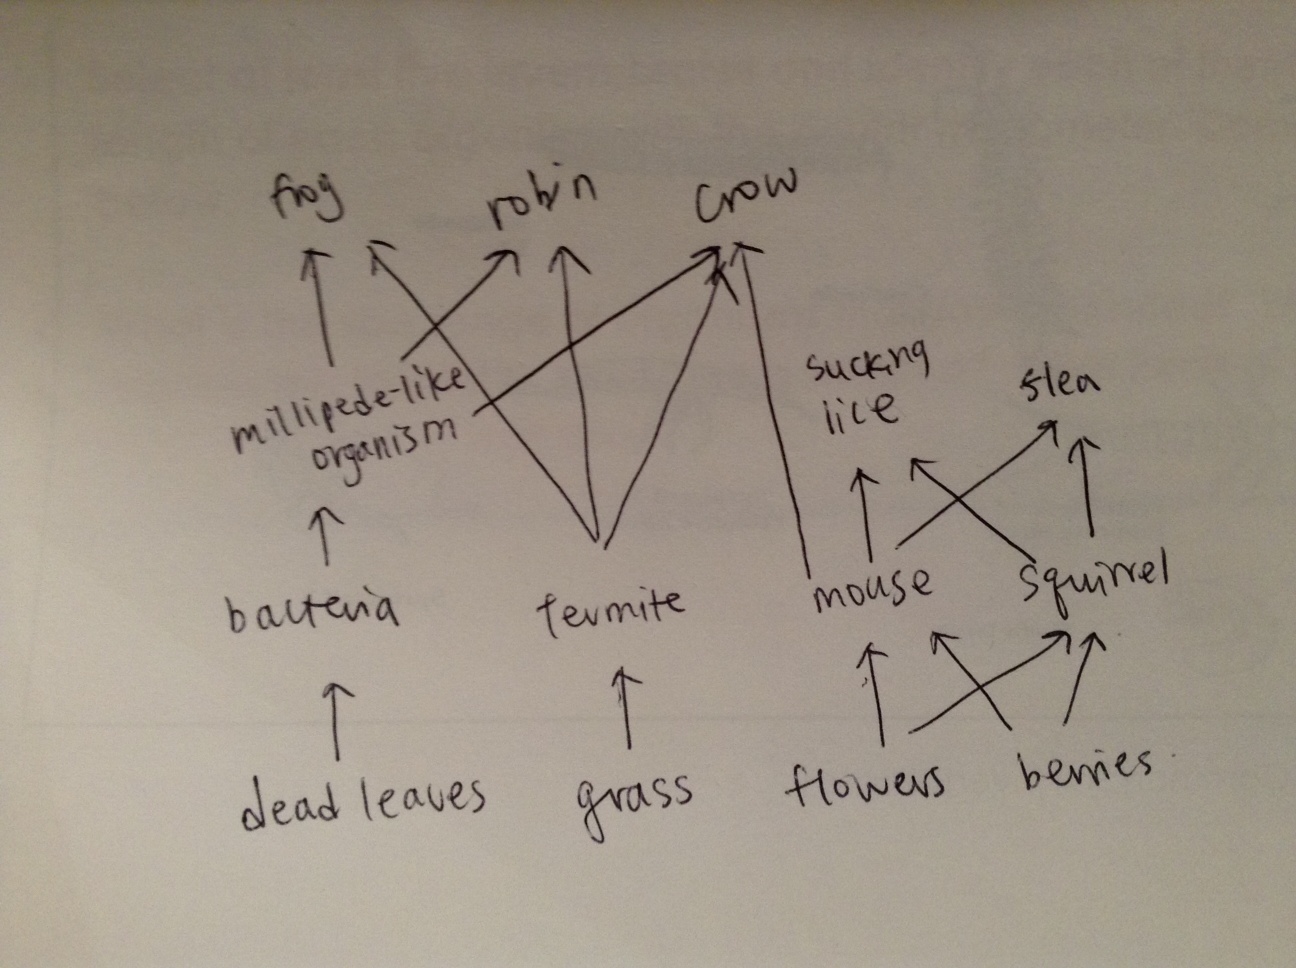 frog
robin
crow
sucking
lice
flea
millipede-like
organism
bacteria
termite
mouse
squirrel
dead leaves
grass
flowers
berries